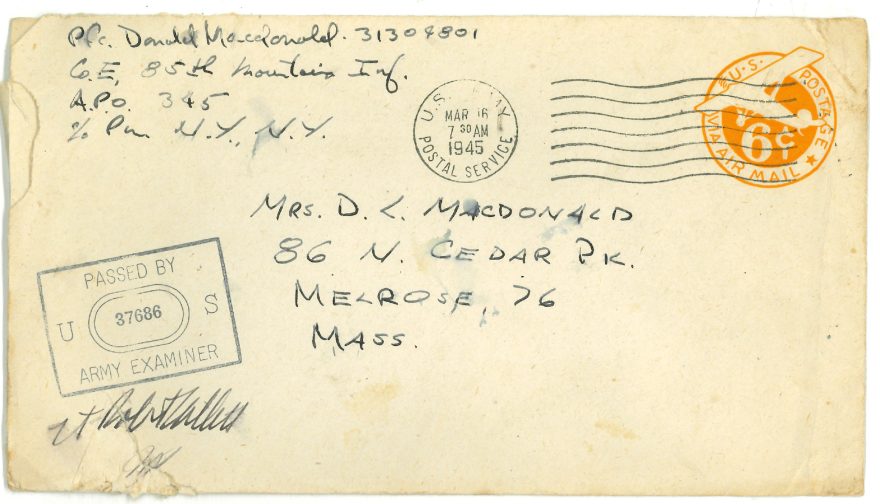 Pfc. Donald Macdonald. 31304801
Co. E, 85th Mountain Inf.
A.P.O. 345
℅ Pm. N.Y., N.Y.
U.S. MY
MAR 16
7 30 AM
1945
POSTAL SERVICE
U.S. POSTAGE
6¢
VIA AIR MAIL
MRS. D. L. MACDONALD
86 N. CEDAR PK.
MELROSE, 76
MASS.
PASSED BY
U 37686 S
ARMY EXAMINER
Lt